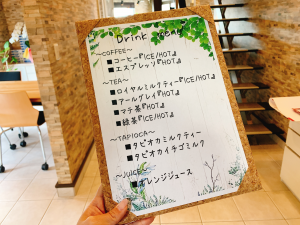 Drink menu
～COFFEE～
■コーヒー『ICE/HOT』
■エスプレッソ『HOT』
～TEA～
■ロイヤルミルクティー『ICE/HOT』
■アールグレイ『HOT』
■マテ茶『HOT』
■緑茶『ICE/HOT』
～TAPIOCA～
■タピオカミルクティー
■タピオカイチゴミルク
～JUICE～
■オレンジジュース